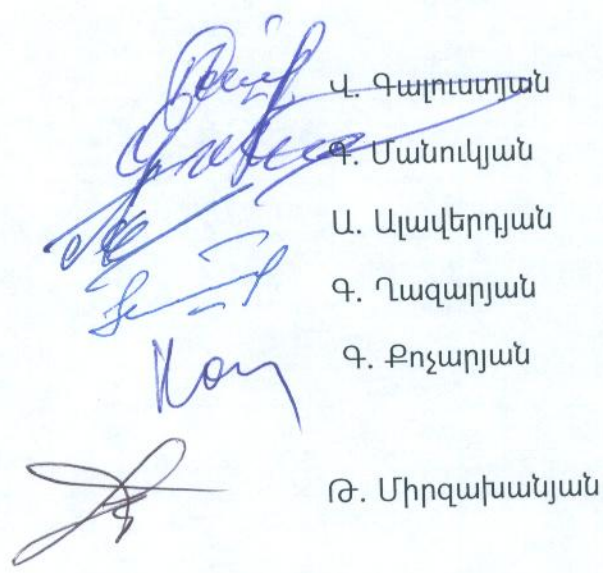 Վ. Գալուստյան
Գ. Մանուկյան
Ա. Ալավերդյան
Գ. Ղազարյան
Գ. Քոչարյան
Թ. Միրզախանյան